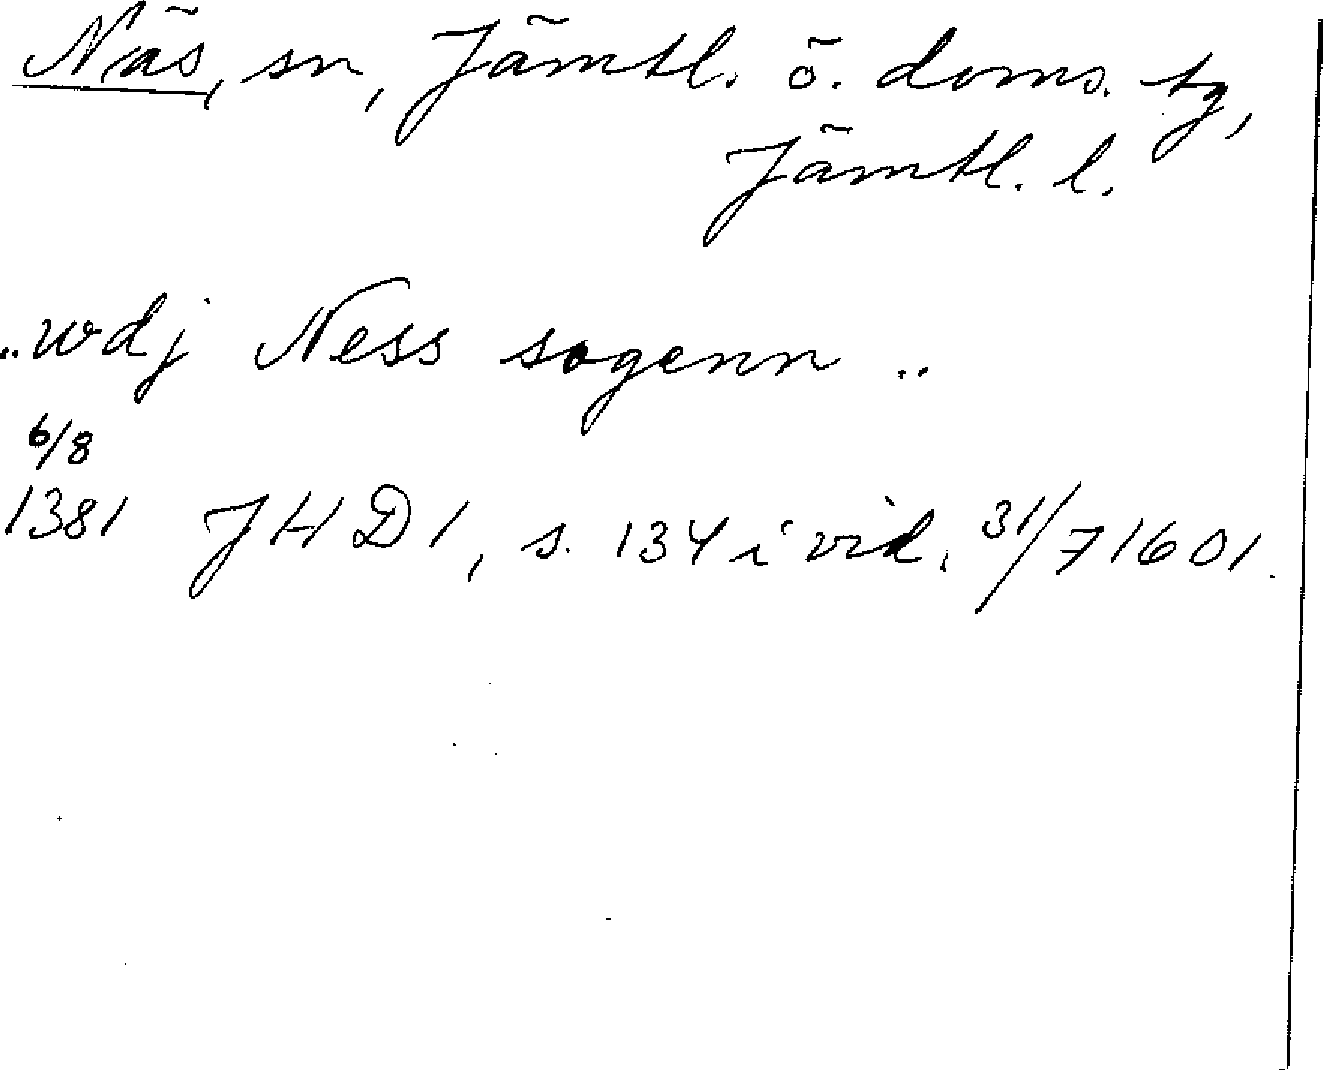 Näs, sn, Jämtl. ö. doms. tg,
Jämtl. l.
..wdj Ness sogenn ..
6/8
1381 JHD 1, s. 134 i vid. 31/7 1601.